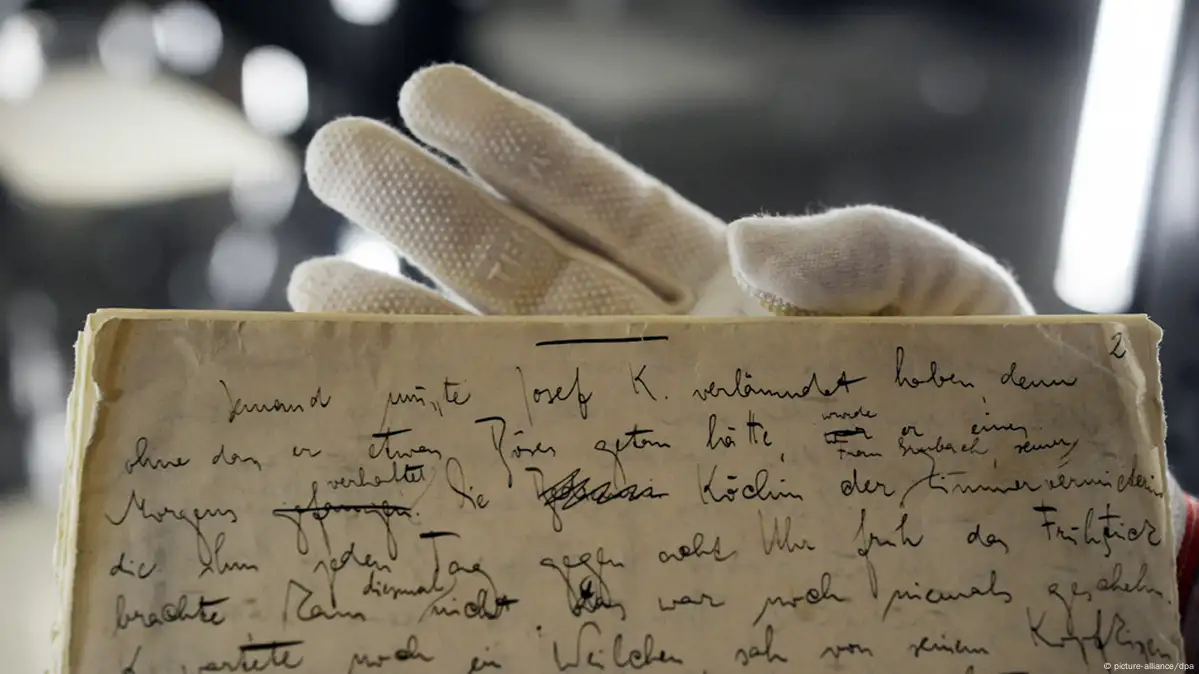 2
Jemand musste Josef K. verläumdet haben, denn
ohne dass er etwas Böses getan hätte, wurde er eines
Frau Grubach, seiner
Morgens gefangen verhaftet. Die Köchin der Zimmervermieterin
die ihm jeden Tag gegen acht Uhr früh das Frühstück
brachte kam diesmal nicht. Das war noch niemals geschehn.
K. wartete noch ein Weilchen, sah von seinem Kopfkissen
© picture-alliance/dpa